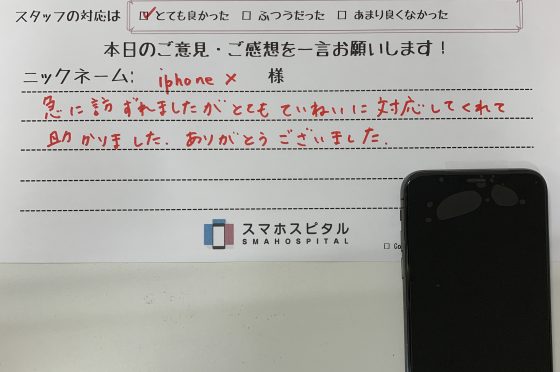 スタッフの対応は ☑とても良かった □ ふつうだった □ あまり良くなかった
本日のご意見・ご感想を一言お願いします！
ニックネーム: iphone x 様
急に訪ずれましたがとてもていねいに対応してくれて
助かりました. ありがとうございました.
スマホスピタル
SMAHOSPITAL